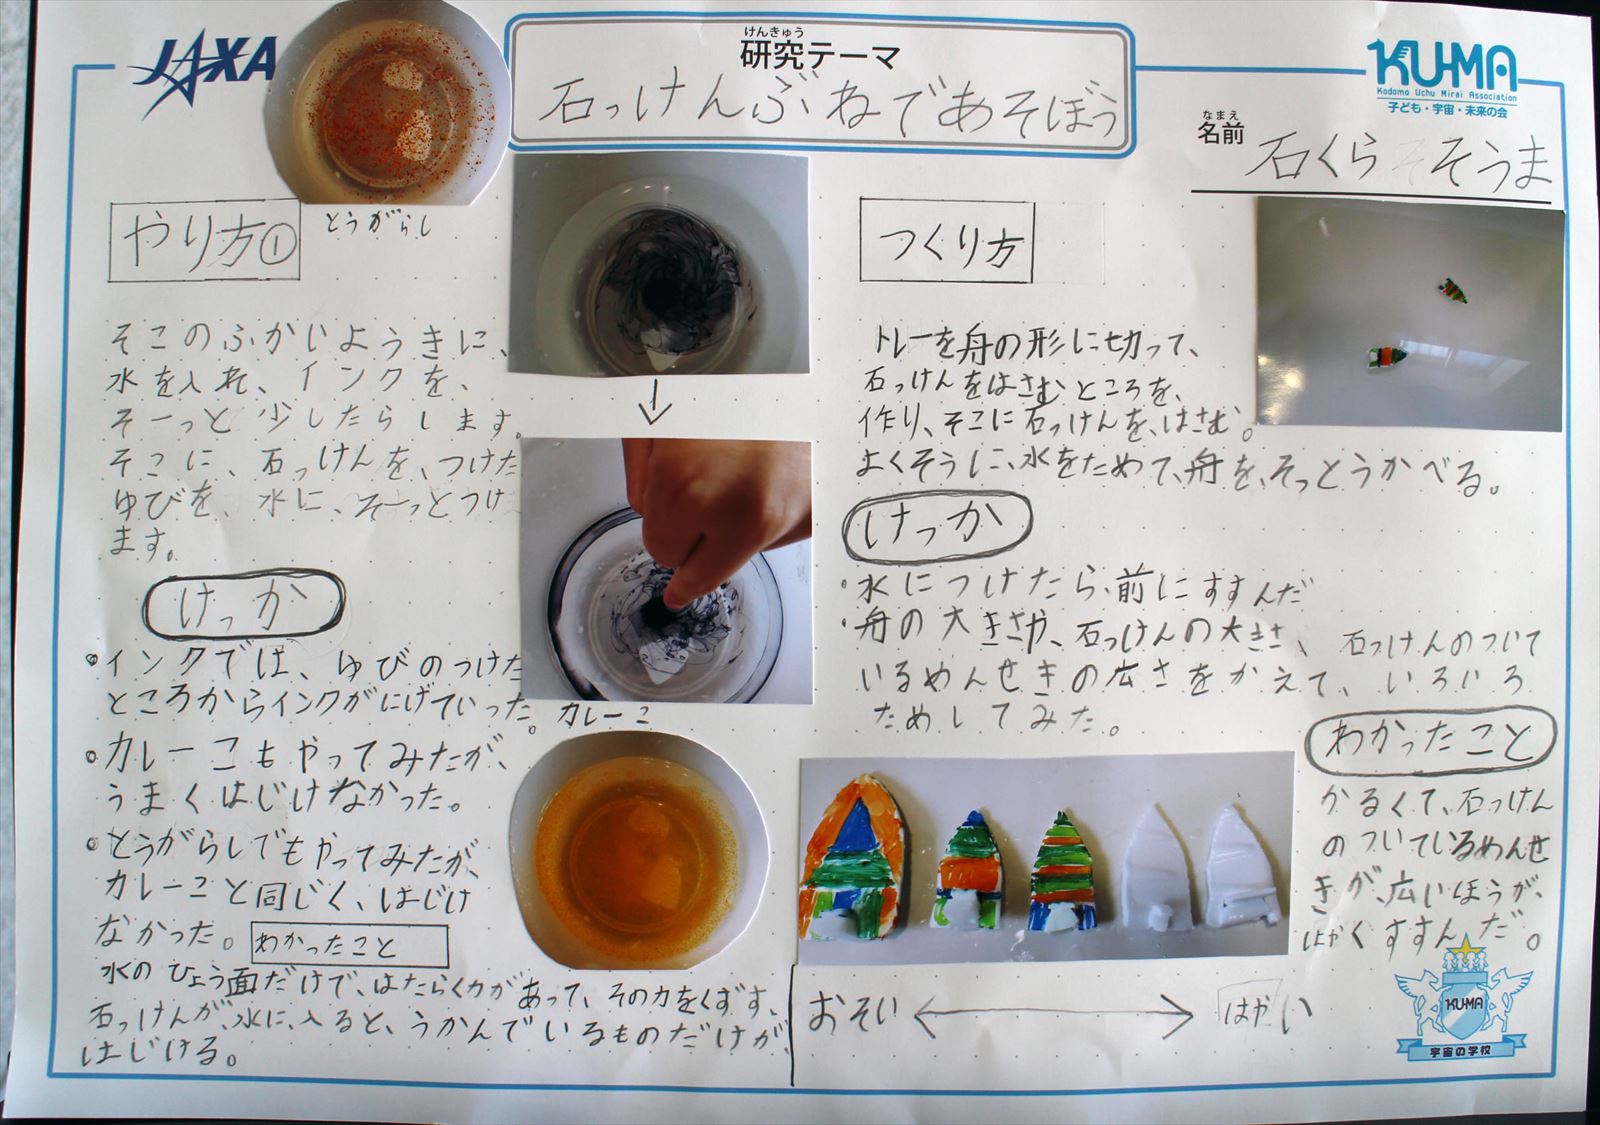 JAXA
けんきゅう
研究テーマ
石っけんぶねであそぼう
KU-MA
Kodomo Uchu Mirai Association
子ども・宇宙・未来の会
なまえ
名前
石くら そうま
とうがらし
やり方①
そこのふかいようきに、
水を入れ、インクを、
そーっと少したらします。
そこに、石っけんを、つけた
ゆびを、水に、そーっとつけ
ます。
けっか
・インクでは、ゆびのつけた
ところからインクがにげていった。
・カレーこもやってみたが、
うまくはじけなかった。
・とうがらしでもやってみたが、
カレーこと同じく、はじけ
なかった。
わかったこと
水のひょう面だけで、はたらく力があって、その力をくずす、
石っけんが、水に、入ると、うかんでいるものだけが、
はじける。
カレーこ
つくり方
トレーを舟の形に切って、
石っけんをはさむところを、
作り、そこに石っけんを、はさむ。
よくそうに、水をためて、舟を、そっとうかべる。
けっか
・水につけたら前にすすんだ
・舟の大きさや、石っけんの大きさ、石っけんのついて
いるめんせきの広さをかえて、いろいろ
ためしてみた。
わかったこと
かるくて、石っけん
のついているめんせ
きが、広いほうが、
はやくすすんだ。
おそい
はやい
KU-MA
宇宙の学校